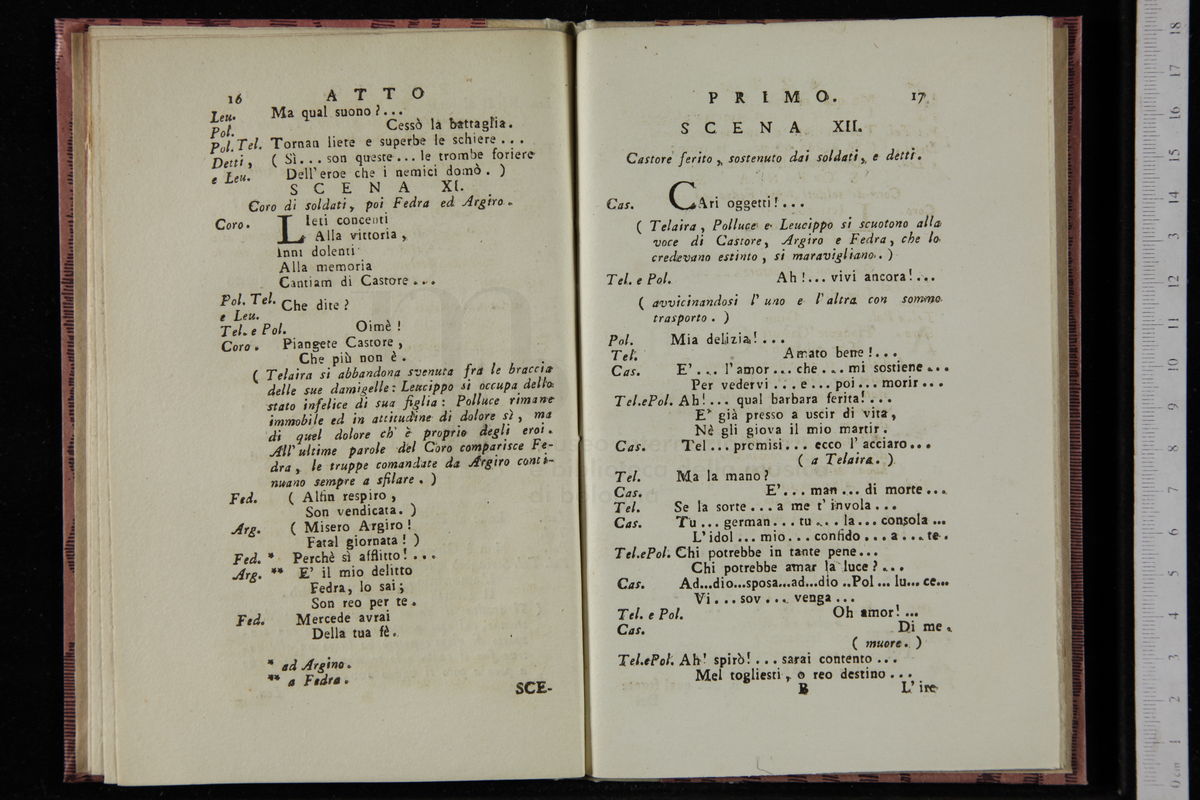 16 ATTO
Leu. Ma qual suono?...
Pol. Cessò la battaglia.
Pol. Tel. Tornan liete e superbe le schiere...
Detti, ( Sì... son queste... le trombe foriere
e Leu. Dell'eroe che i nemici domò. )
SCENA XI.
Coro di soldati, poi Fedra ed Argiro.
Coro. LIeti concenti
Alla vittoria,
Inni dolenti
Alla memoria
Cantiam di Castore...
Pol. Tel. Che dite?
e Leu.
Tel. e Pol. Oimè!
Coro. Piangete Castore,
Che più non è.
( Telaira si abbandona svenuta fra le braccia
delle sue damigelle: Leucippo si occupa dello
stato infelice di sua figlia: Polluce rimane
immobile ed in attitudine di dolore sì, ma
di quel dolore ch' è proprio degli eroi.
All' ultime parole del Coro comparisce Fe-
dra, le truppe comandate da Argiro conti-
nuano sempre a sfilare. )
Fed. ( Alfin respiro,
Son vendicata. )
Arg. ( Misero Argiro!
Fatal giornata! )
Fed. * Perchè sì afflitto!...
Arg. ** E' il mio delitto
Fedra, lo sai;
Son reo per te.
Fed. Mercede avrai
Della tua fè.
* ad Argino.
** a Fedra.
SCE-
PRIMO. 17
SCENA XII.
Castore ferito, sostenuto dai soldati, e detti.
Cas. CAri oggetti!...
( Telaira, Polluce e Leucippo si scuotono alla
voce di Castore, Argiro e Fedra, che lo
credevano estinto, si maravigliano. )
Tel. e Pol. Ah!... vivi ancora!...
( avvicinandosi l' uno e l' altra con sommo
trasporto. )
Pol. Mia delizia!...
Tel. Amato bene!...
Cas. E'... l'amor... che... mi sostiene...
Per vedervi... e... poi... morir...
Tel.e Pol. Ah!... qual barbara ferita!...
E' già presso a uscir di vita,
Nè gli giova il mio martir.
Cas. Tel... promisi... ecco l' acciaro...
( a Telaira. )
Tel. Ma la mano?
Cas. E'... man... di morte...
Tel. Se la sorte... a me t' invola...
Cas. Tu... german... tu... la... consola...
L' idol... mio... confido... a... te.
Tel.e Pol. Chi potrebbe in tante pene...
Chi potrebbe amar la luce?...
Cas. Ad...dio...sposa...ad...dio..Pol... lu... ce...
Vi... sov... venga...
Tel. e Pol. Oh amor!...
Cas. Di me.
( muore. )
Tel.e Pol. Ah! spirò!... sarai contento...
Mel togliesti, o reo destino...
B L' ire